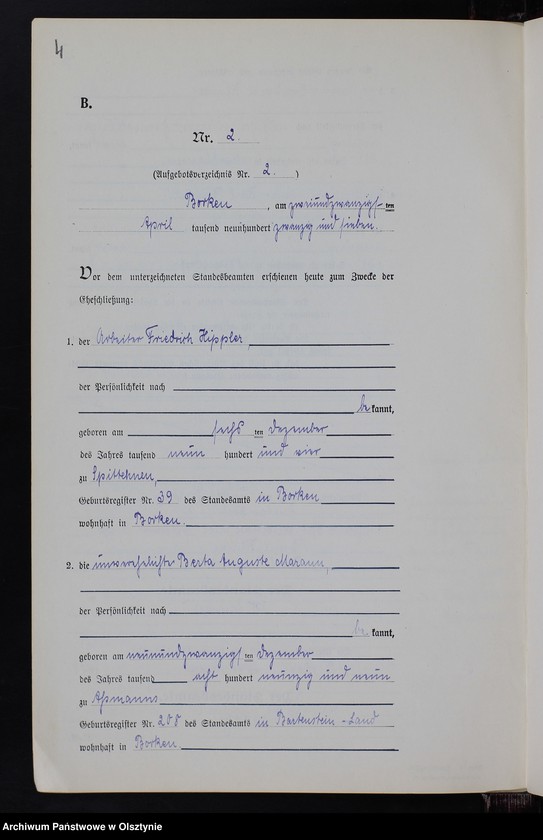 4
B.
Nr. 2.
(Aufgebotsverzeichnis Nr. 2. )
Borken, am zweiundzwanzigsten
April tausend neunhundert zwanzig und sieben.
Vor dem unterzeichneten Standesbeamten erschienen heute zum Zwecke der
Eheschließung:
1. der Arbeiter Friedrich Hippler,
der Persönlichkeit nach
bekannt,
geboren am sechsten Dezember
des Jahres tausend neun hundert und vier
zu Spittehnen,
Geburtsregister Nr. 39 des Standesamts in Borken
wohnhaft in Borken.
2. die unverehelichte Berta Auguste Marann,
der Persönlichkeit nach
bekannt,
geboren am neunundzwanzigsten Dezember
des Jahres tausend acht hundert neunzig und neun
zu Assmanns
Geburtsregister Nr. 200 des Standesamts in Bartenstein-Land
wohnhaft in Borken
Archiwum Państwowe w Olsztynie